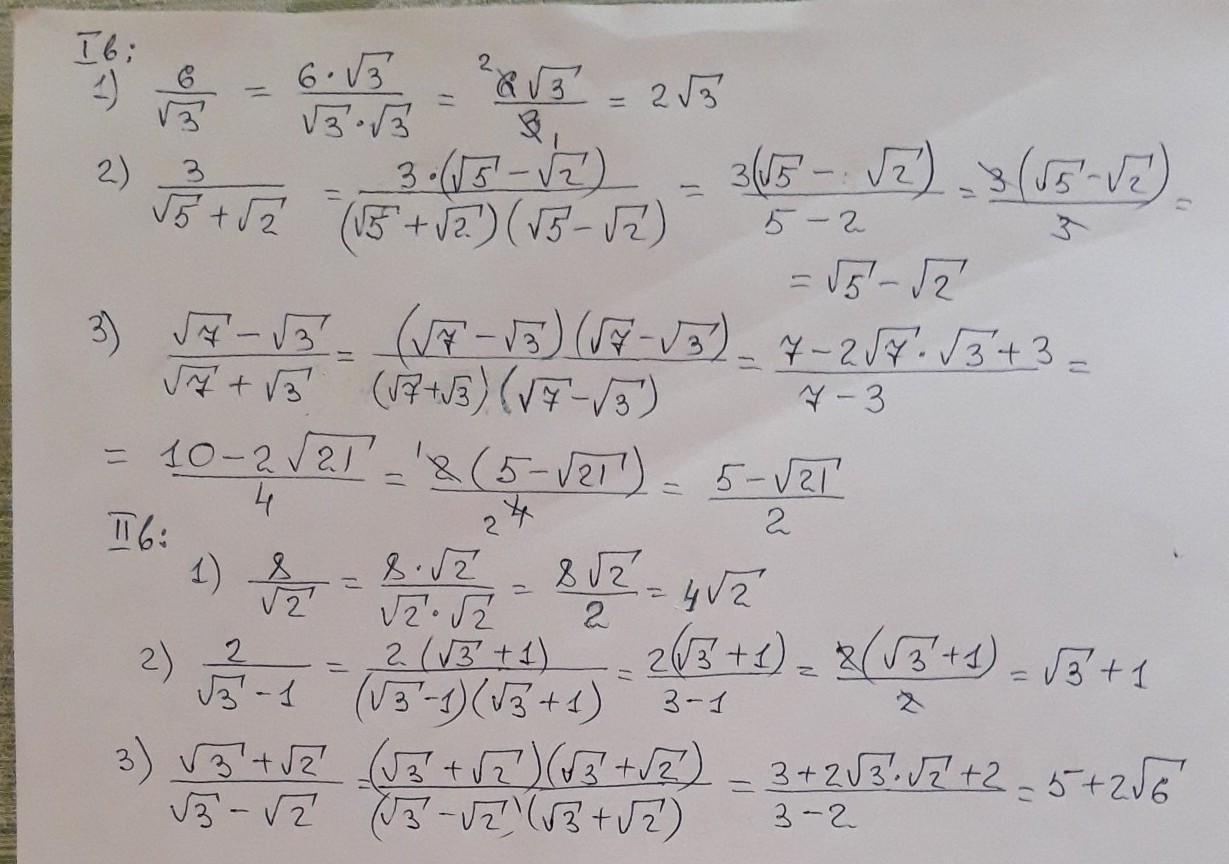 I в:
1) 6/√3 = 6·√3/√3·√3 = ²6√3/3₁ = 2√3
2) 3/√5+√2 = 3·(√5-√2)/(√5+√2)(√5-√2) = 3(√5-√2)/5-2 = 3(√5-√2)/3 =
= √5-√2
3) √7-√3/√7+√3 = (√7-√3)(√7-√3)/(√7+√3)(√7-√3) = 7-2√7·√3+3/7-3 =
= 10-2√21/4 = ¹2(5-√21)/₂4 = 5-√21/2
II в:
1) 8/√2 = 8·√2/√2·√2 = 8√2/2 = 4√2
2) 2/√3-1 = 2(√3+1)/(√3-1)(√3+1) = 2(√3+1)/3-1 = 2(√3+1)/2 = √3+1
3) √3+√2/√3-√2 = (√3+√2)(√3+√2)/(√3-√2)(√3+√2) = 3+2√3·√2+2/3-2 = 5+2√6